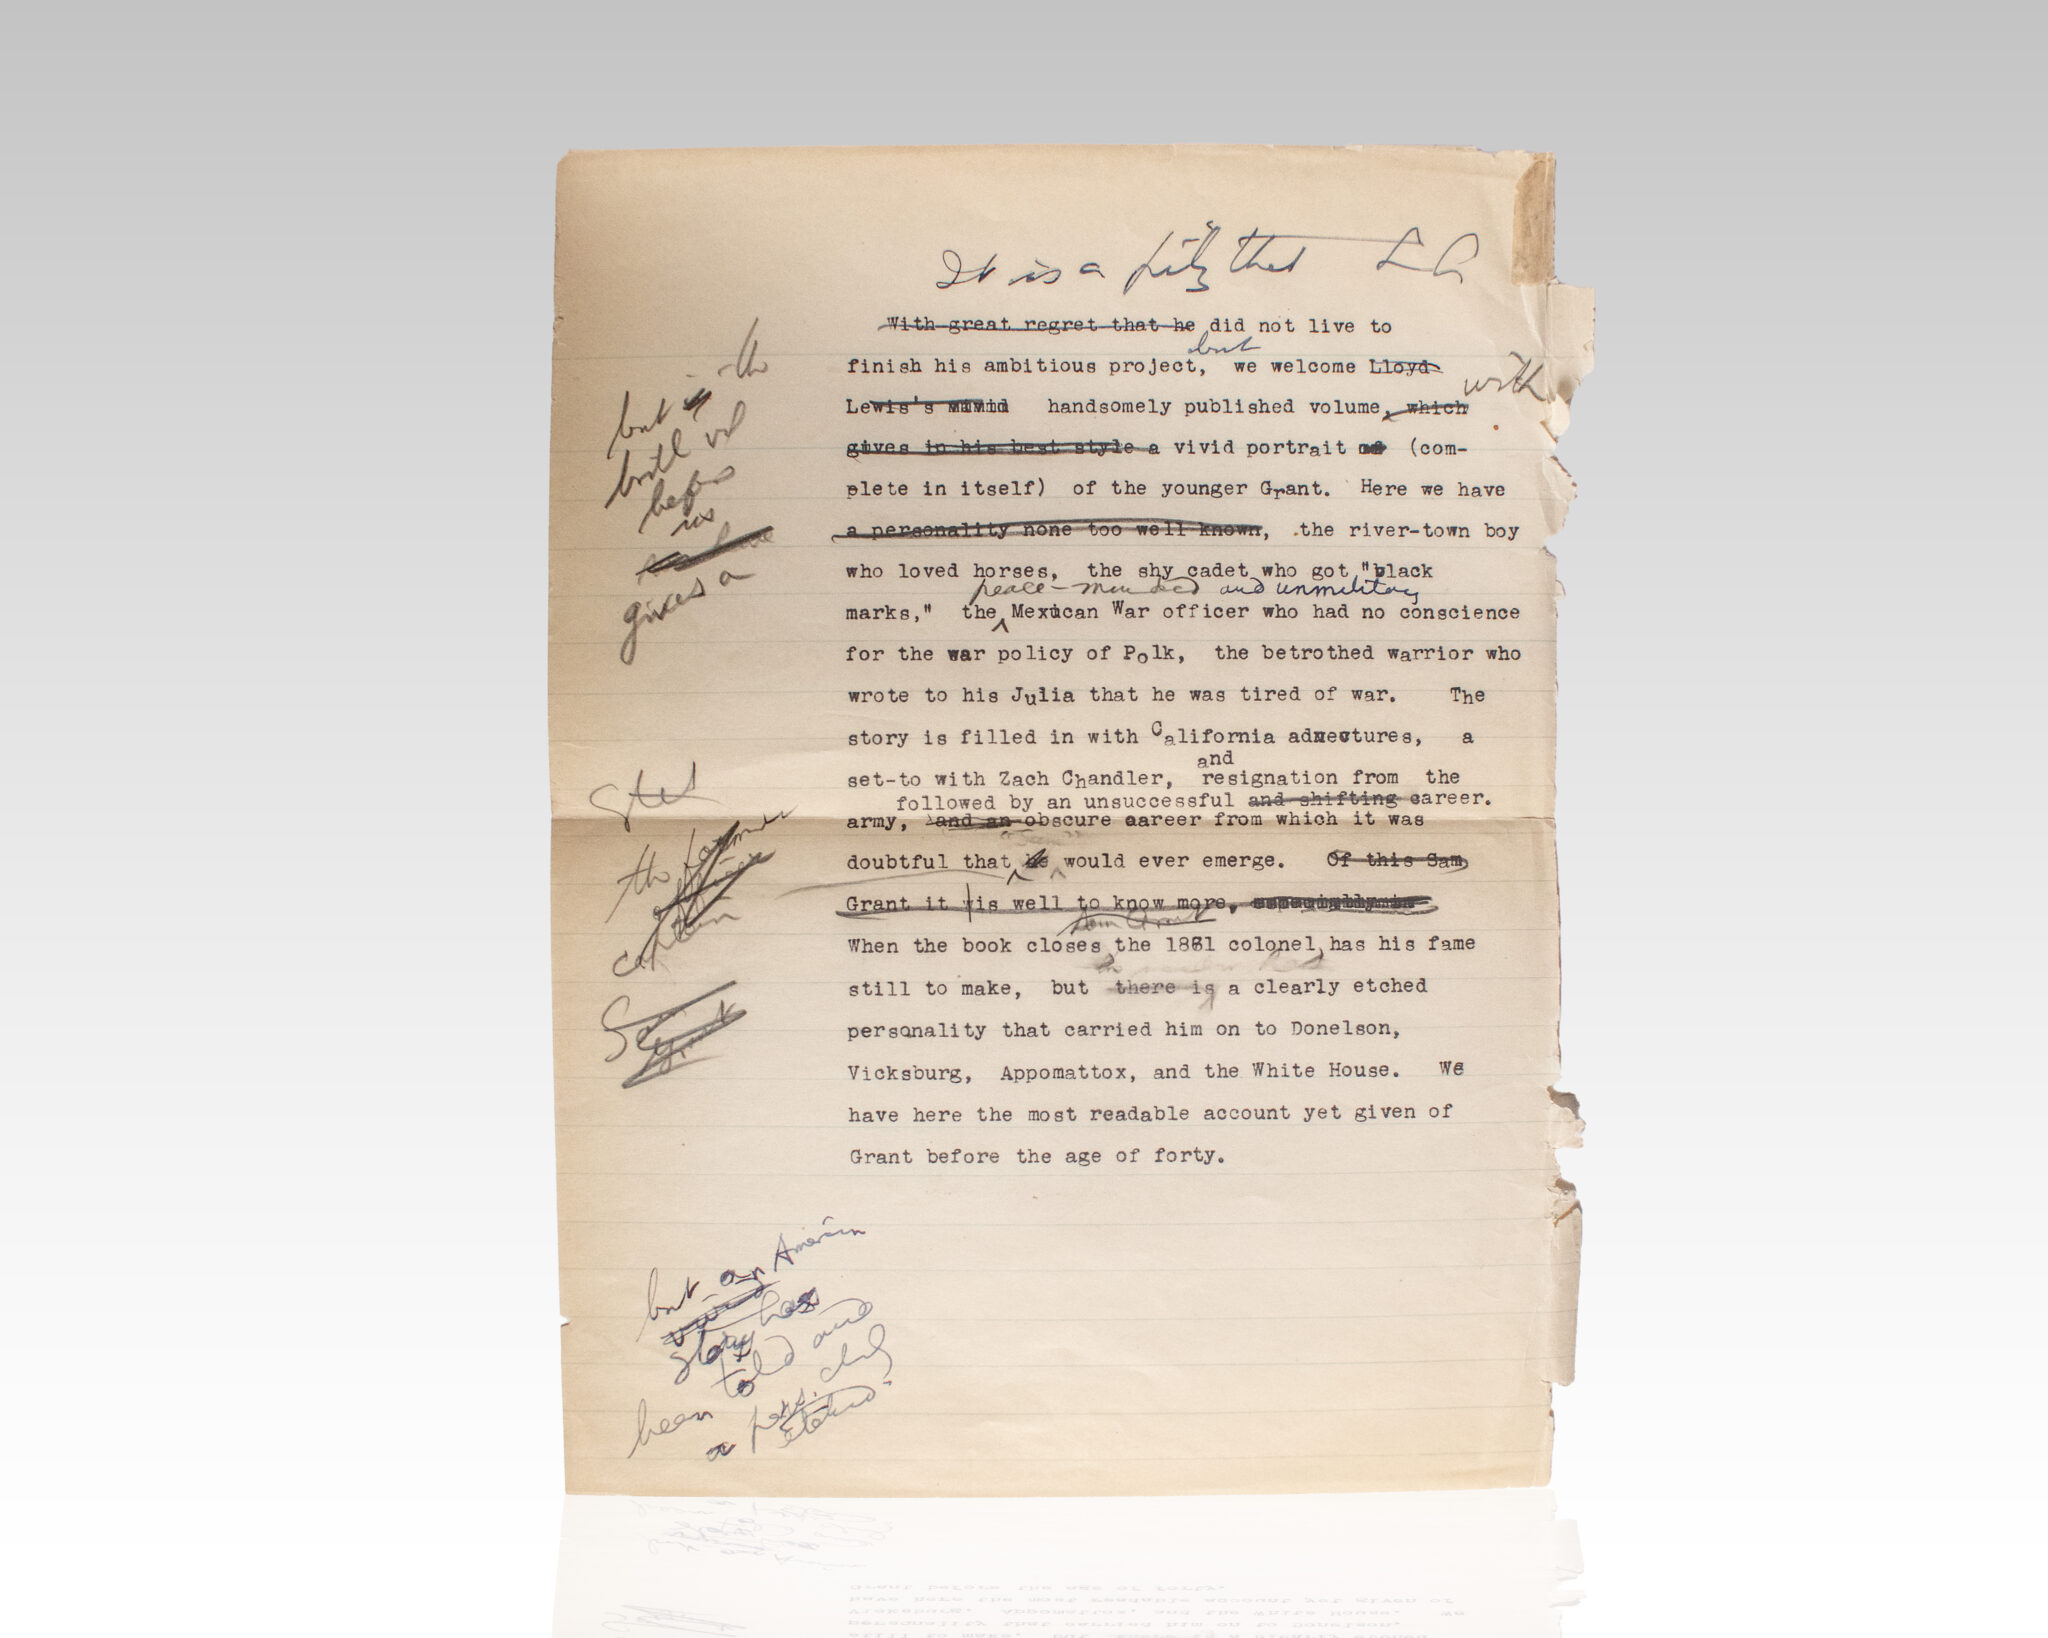 It is a pity that L
With great regret that he did not live to
but
finish his ambitious project, we welcome Lloyd
with
Lewis's vivid handsomely published volume, which
gives in his best style a vivid portrait of (com-
plete in itself) of the younger Grant. Here we have
a personality none too well known, the river-town boy
who loved horses, the shy cadet who got "black
peace-minded and unmilitary
marks," the Mexican War officer who had no conscience
for the war policy of Polk, the betrothed warrior who
wrote to his Julia that he was tired of war. The
story is filled in with California adxectures, a
and
set-to with Zach Chandler, resignation from the
followed by an unsuccessful and shifting career.
army, and an obscure career from which it was
"Sam"
doubtful that he would ever emerge. Of this Sam
Grant it is well to know more, especially in
Sam Grant
When the book closes, the 1861 colonel, has his fame
still to make, but there is a clearly etched
personality that carried him on to Donelson,
Vicksburg, Appomattox, and the White House. We
have here the most readable account yet given of
Grant before the age of forty.
but in the
before
us
gives a
Stet
the former
officer
captain
Sam
Grant
but an American
vivid
story has
told and
been
a pers. clearly
etched.